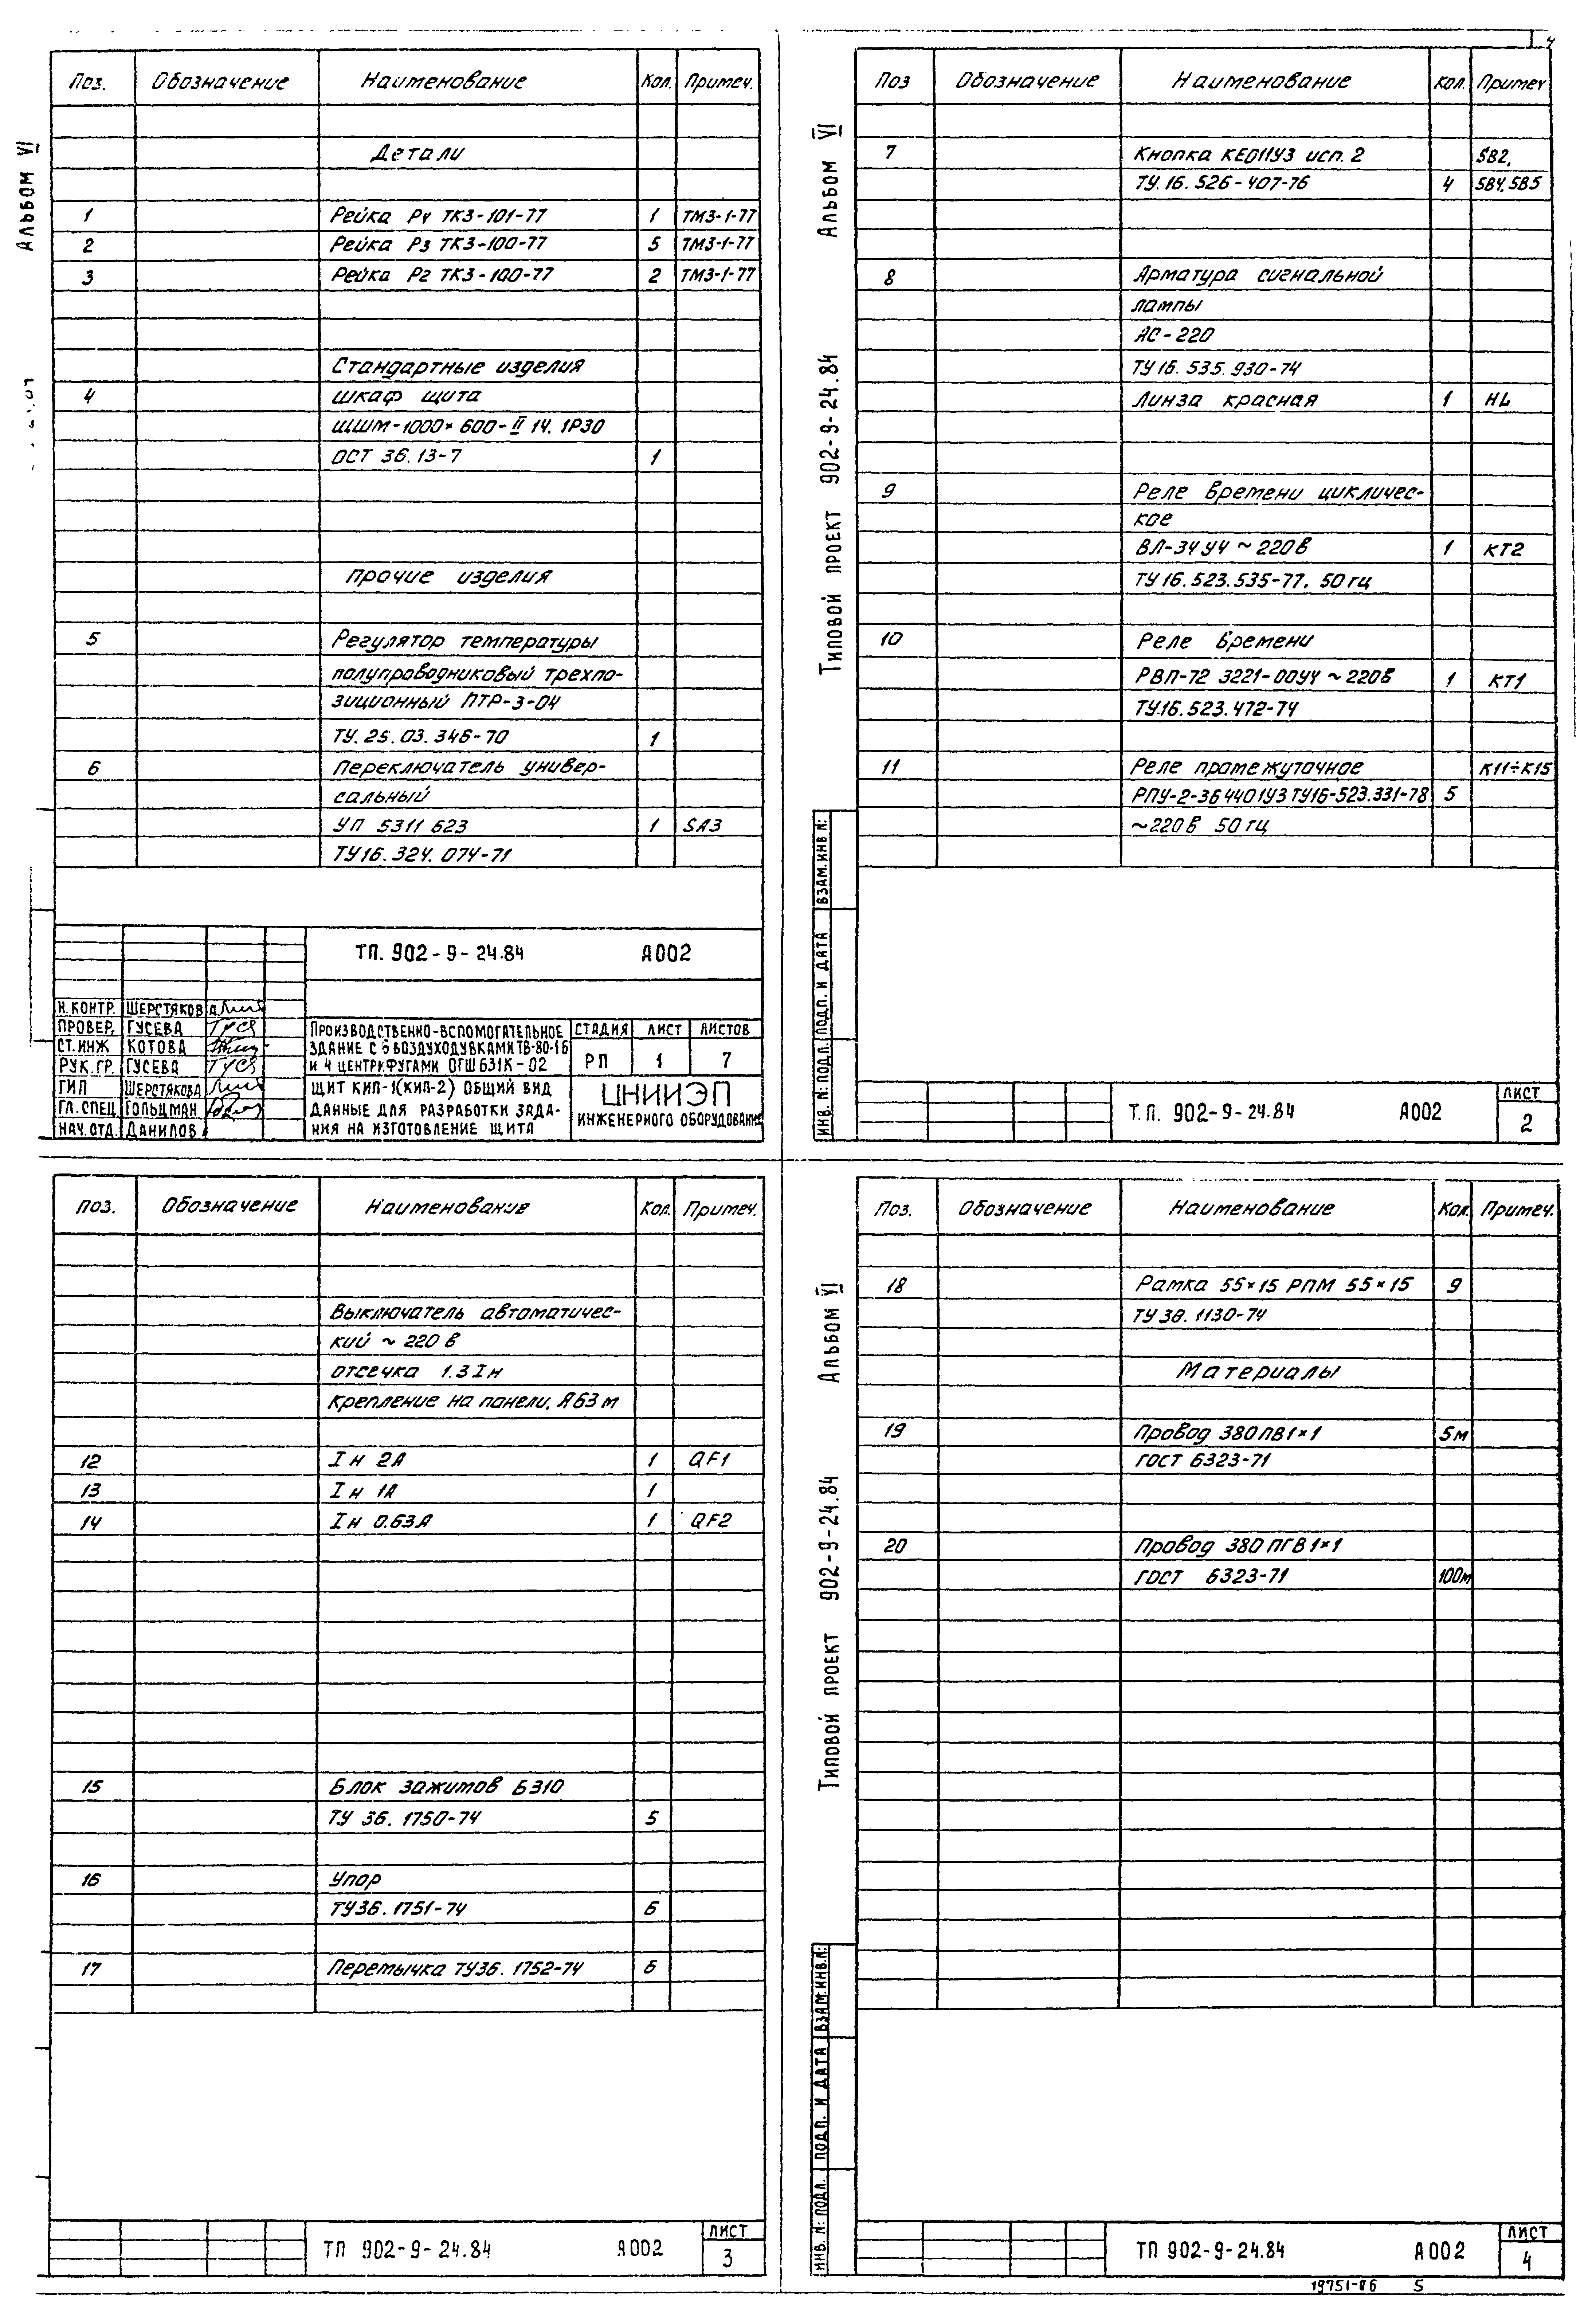 4
Альбом VI
Поз. Обозначение Наименование Кол. Примеч.
Детали
1 Рейка Р4 ТК3-101-77 1 ТМ3-1-77
2 Рейка Р3 ТК3-100-77 5 ТМ3-1-77
3 Рейка Р2 ТК3-100-77 2 ТМ3-1-77
Стандартные изделия
4 шкаф щита
ЩШМ-1000×600-II 14. 1Р30
ОСТ 36.13-7 1
прочие изделия
5 Регулятор температуры
полупроводниковый трехпо-
зиционный ПТР-3-04
ТУ. 25. 03. 346-70 1
6 Переключатель универ-
сальный
УП 5311 623 1 SA3
ТУ16.324. 074-71
ТП. 902-9-24.84 А002
Н.КОНТР. ШЕРСТЯКОВ
ПРОВЕР. ГУСЕВА
СТ.ИНЖ КОТОВА
РУК.ГР. ГУСЕВА
ГИП ШЕРСТЯКОВА
ГЛ.СПЕЦ ГОЛЬЦМАН
НАЧ.ОТД. ДАНИЛОВ
ПРОИЗВОДСТВЕННО-ВСПОМОГАТЕЛЬНОЕ
ЗДАНИЕ С 6 ВОЗДУХОДУВКАМИ ТВ-80-1.6
И 4 ЦЕНТРИФУГАМИ ОГШ 631К-02
СТАДИЯ ЛИСТ ЛИСТОВ
РП 1 7
ЩИТ КИП-1(КИП-2) ОБЩИЙ ВИД
ДАННЫЕ ДЛЯ РАЗРАБОТКИ ЗАДА-
НИЯ НА ИЗГОТОВЛЕНИЕ ЩИТА
ЦНИИЭП
ИНЖЕНЕРНОГО ОБОРУДОВАНИЯ
Типовой проект 902-9-24.84 Альбом VI
Поз Обозначение Наименование Кол. Примеч
7 Кнопка КЕ011У3 исп. 2 SB2,
ТУ.16. 526-407-76 4 SB4, SB5
8 Арматура сигнальной
лампы
АС-220
ТУ16. 535. 930-74
Линза красная 1 HL
9 Реле времени цикличес-
кое
ВЛ-34У4 ~ 220В 1 КТ2
ТУ16.523.535-77. 50гц
10 Реле времени
РВП-72 3221-00У4 ~ 220В 1 КТ1
ТУ.16.523.472-74
11 Реле промежуточное К11÷К15
РПУ-2-364401У3 ТУ16-523.331-78 5
~220В 50гц
ИНВ. N: ПОДЛ. ПОДП. И ДАТА ВЗАМ.ИНВ N:
Т.П. 902-9-24.84 А002
ЛИСТ
2
Поз. Обозначение Наименование Кол. Примеч.
Выключатель автоматичес-
кий ~ 220 В
отсечка 1.3Iн
крепление на панели, А63м
12 Iн 2А 1 QF1
13 Iн 1А 1
14 Iн 0.63А 1 QF2
15 Блок зажимов БЗ10
ТУ 36. 1750-74 5
16 Упор
ТУ36.1751-74 6
17 Перемычка ТУ36. 1752-74 6
ТП 902-9-24.84 А002
ЛИСТ
3
Типовой проект 902-9-24.84 Альбом VI
Поз. Обозначение Наименование Кол. Примеч.
18 Рамка 55×15 РПМ 55×15 9
ТУ 36. 1130-74
Материалы
19 Провод 380 ПВ1×1 5м
ГОСТ 6323-71
20 Провод 380 ПГВ1×1
ГОСТ 6323-71 100м
ИНВ. N: ПОДЛ. ПОДП. И ДАТА ВЗАМ.ИНВ.N:
ТП 902-9-24.84 А002
ЛИСТ
4
19751-06 5